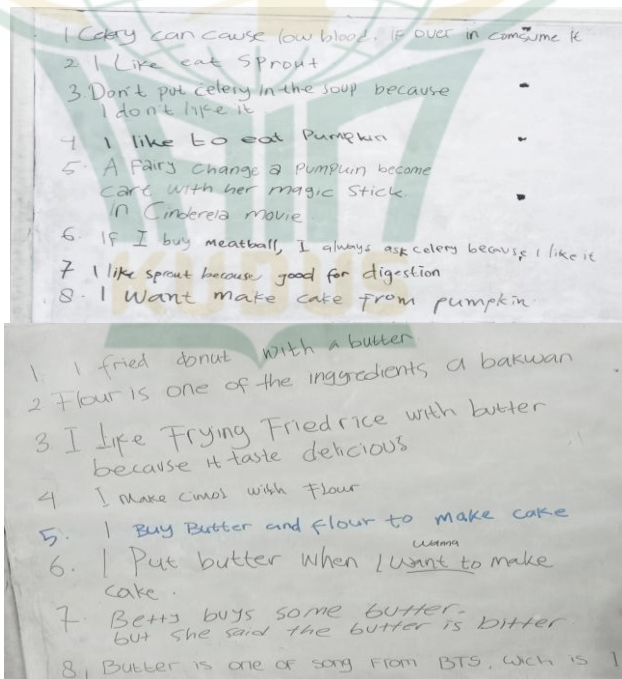 1 Celery can cause low blood. If over in comsume it
2. I Like eat Sprout
3. Don't put celery in the soup because
I don't like it
4 I like to eat Pumpkin
5. A Fairy change a Pumpuin become
cart with her magic Stick
in Cinderela movie
6. If I buy meatball, I always ask celery because I like it
7 I like sprout because good for digestion
8. I Want make cake from pumpkin.
KUDUS
1. I fried donut with a butter
2 Flour is one of the inggredients a bakwan
3. I Like Frying Fried rice with butter
because it taste delicious
4 I make cimol with Flour
5. I Buy Butter and flour to make cake
wanna
6. I Put butter when I want to make
cake.
7. Betty buys some butter.
but she said the butter is bitter
8, Butter is one of song From BTS, wich is 1